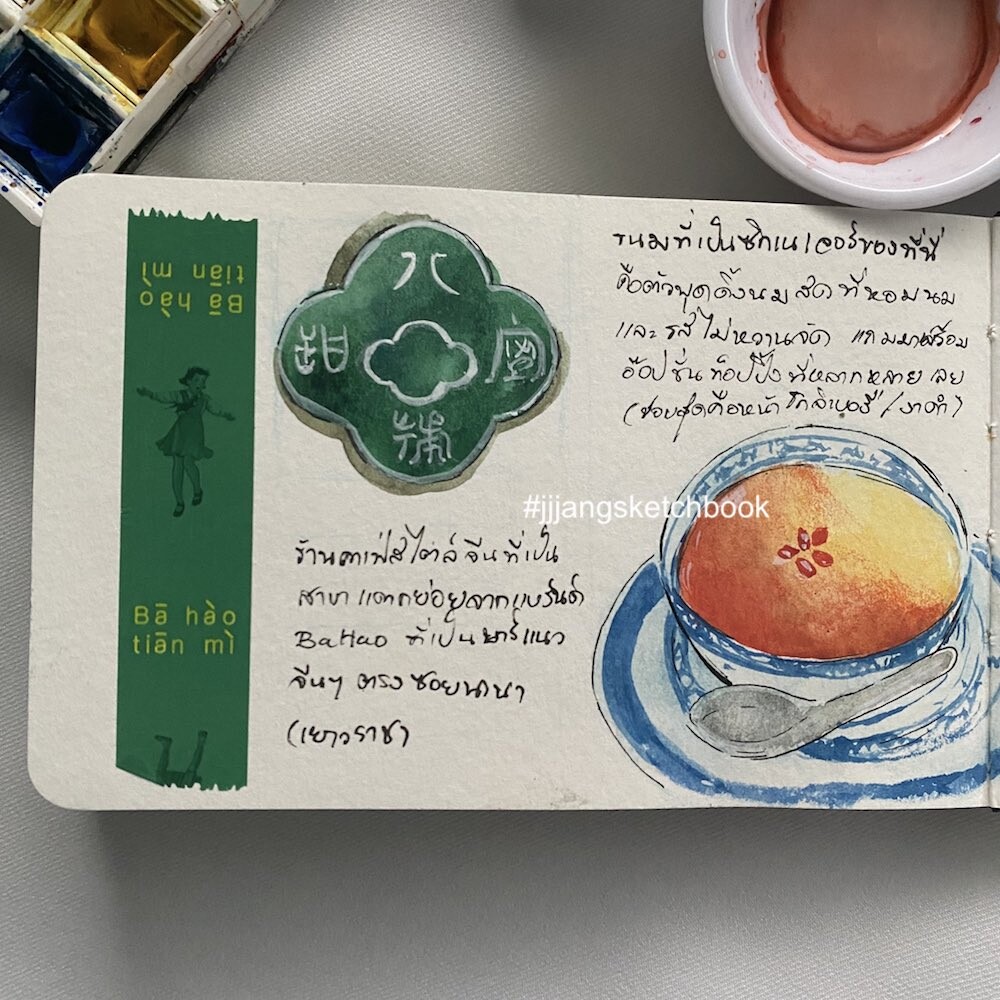 Bā hào
tiān mì
八
甜
Bā hào
tiān mì
ร้านคาเฟ่สไตล์จีนที่เป็น
สาขาแตกย่อยจากแบรนด์
BaHao ที่เป็นบาร์แนว
จีนๆ ตรงซอยนานา
(เยาวราช)
ขนมที่เป็นซิกเนเจอร์ของที่นี่
คือตัวพุดดิ้งนมสดที่หอมนม
และรสไม่หวานจัด แถมมาพร้อม
อ๊อปชั่นท็อปปิ้งที่หลากหลายเลย
(ชอบสุดคือหน้าโกจิเบอรี่/งาดำ)
#jjjangsketchbook